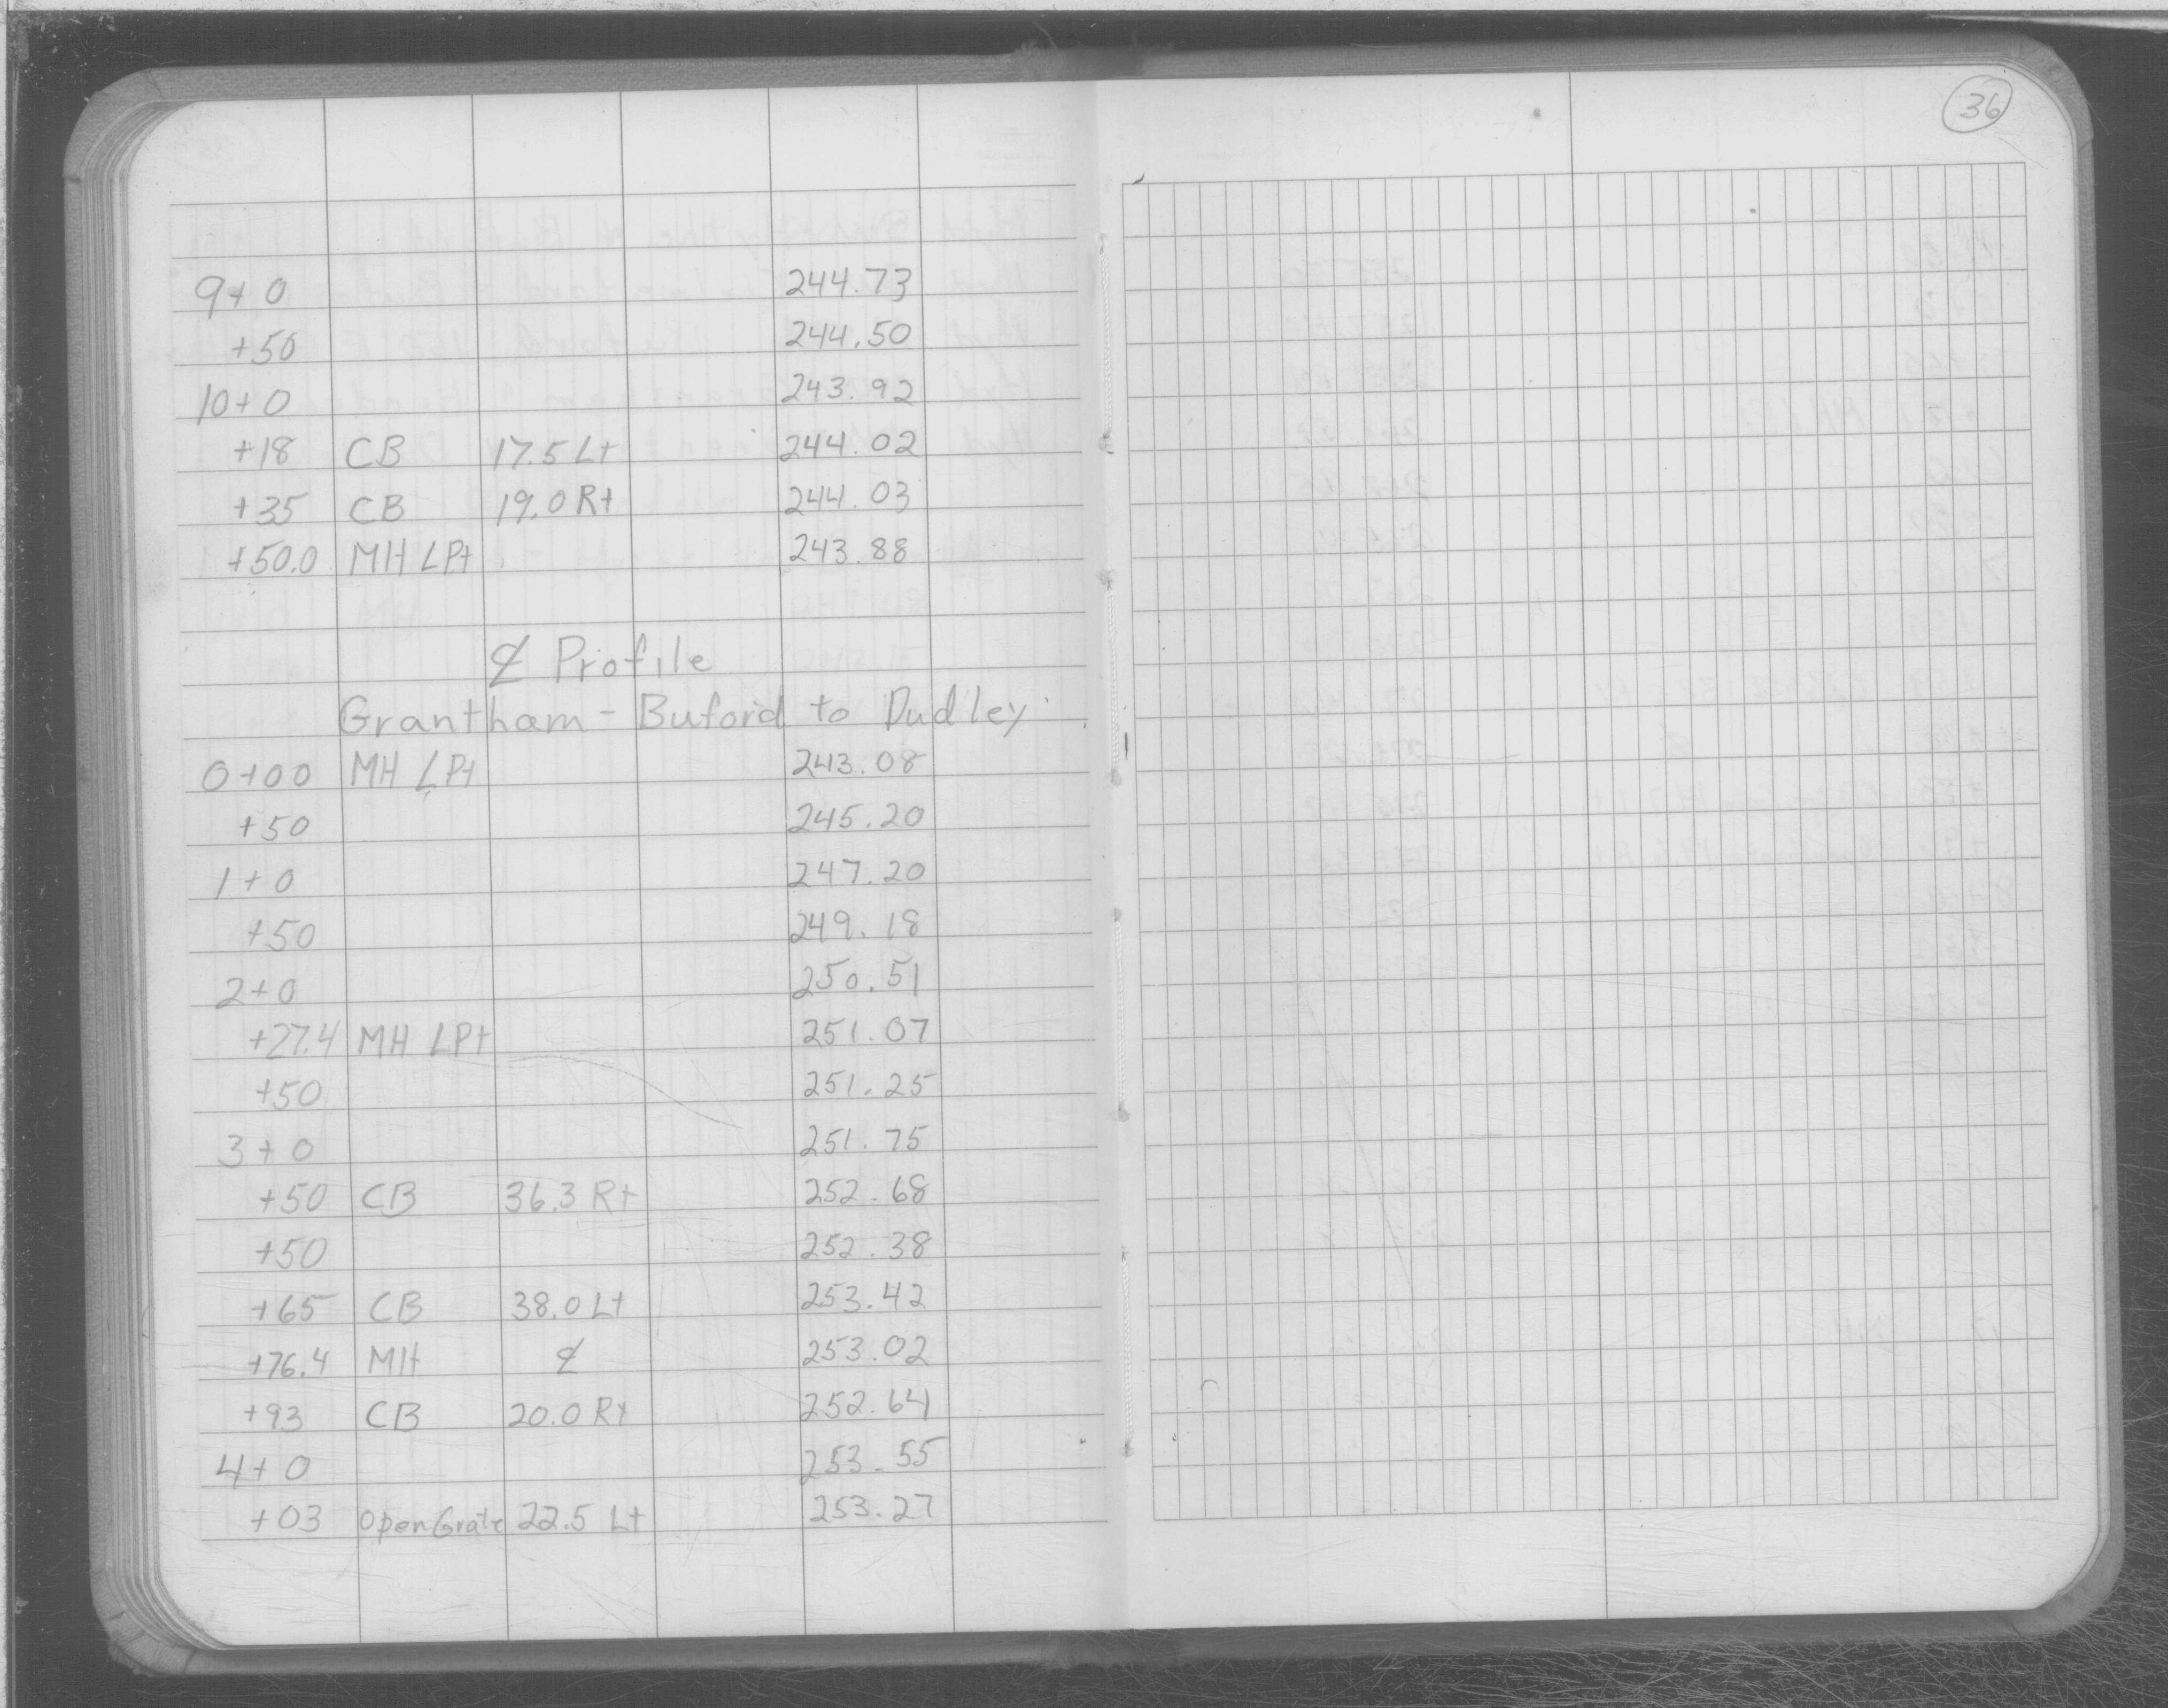 36
9+0 244.73
+50 244.50
10+0 243.92
+18 CB 17.5 Lt 244.02
+35 CB 19.0 Rt 244.03
+50.0 MH LPt 243.88
℄ Profile
Grantham - Buford to Dudley
0+00 MH LPt 243.08
+50 245.20
1+0 247.20
+50 249.18
2+0 250.51
+27.4 MH LPt 251.07
+50 251.25
3+0 251.75
+50 CB 36.3 Rt 252.68
+50 252.38
+65 CB 38.0 Lt 253.42
+76.4 MH ℄ 253.02
+93 CB 20.0 Rt 252.64
4+0 253.55
+03 Open Grate 22.5 Lt 253.27